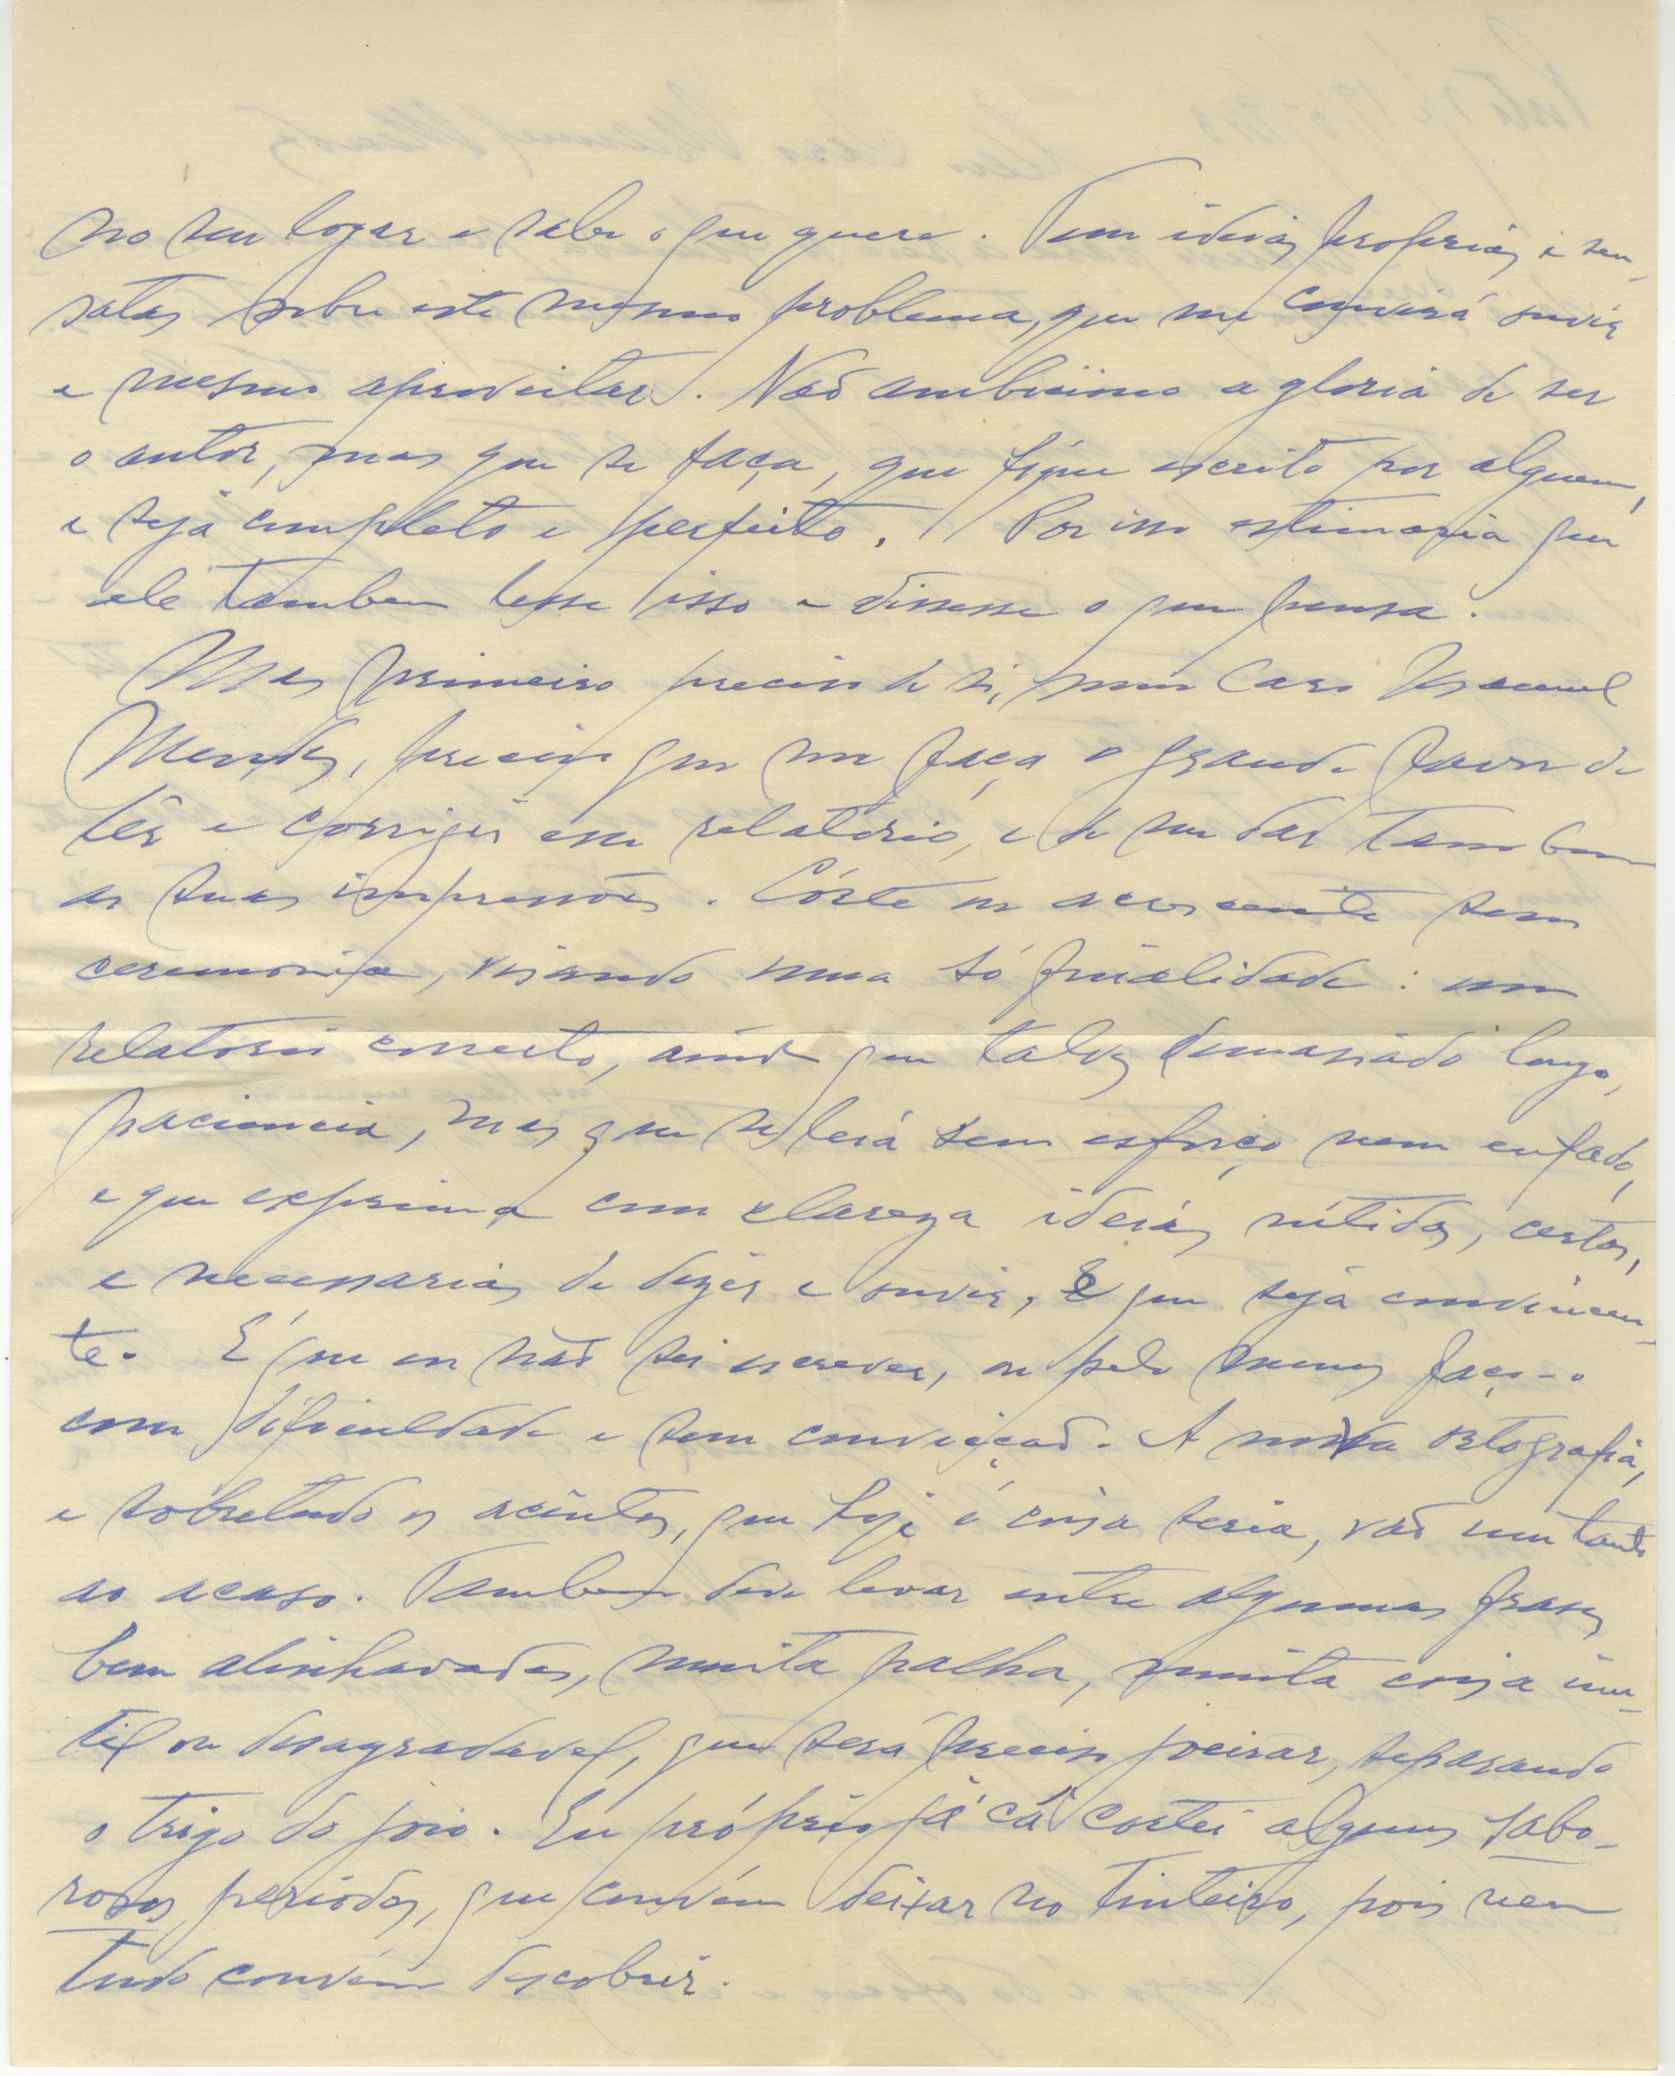 no seu logar e sabe o que quere. Tem ideias proprias e sen-
satas sobre este mesmo problema, que me convirá ouvir
e mesmo aproveitar. Não ambiciono a gloria de ser
o autor, mas que se faça, que fique escrito por alguem,
e seja completo e perfeito. Por isso estimaria que
ele tambem lesse isso e dissesse o que pensa.
Mas primeiro preciso de si, meu Caro Manuel
Mendes, preciso que me faça o grande favor de
lêr e corrigir esse relatório, e de me dar tambem
as suas impressões. Córte ou acrescente sem
ceremonia, visando uma só finalidade: um
relatorio correcto, ainda que talvez demasiado longo,
paciencia, mas que se lerá sem esforço nem enfado,
e que exprima com clareza ideias nítidas, certas,
e necessarias de dizer e ouvir, e que seja convincen-
te. É que eu não sei escrever, ou pelo menos faço-o
com dificuldade e sem convicção. A minha ortografia,
e sobretudo os acentos, que hoje é coisa seria, vão um tanto
ao acaso. Tambem deve levar entre algumas frases
bem alinhavadas, muita palha, muita coisa inu-
til ou desagradavel, que será preciso joeirar, separando
o trigo do joio. Eu próprio já cá cortei alguns sabo-
rosos periodos, que convém deixar no tinteiro, pois nem
tudo convém descobrir.